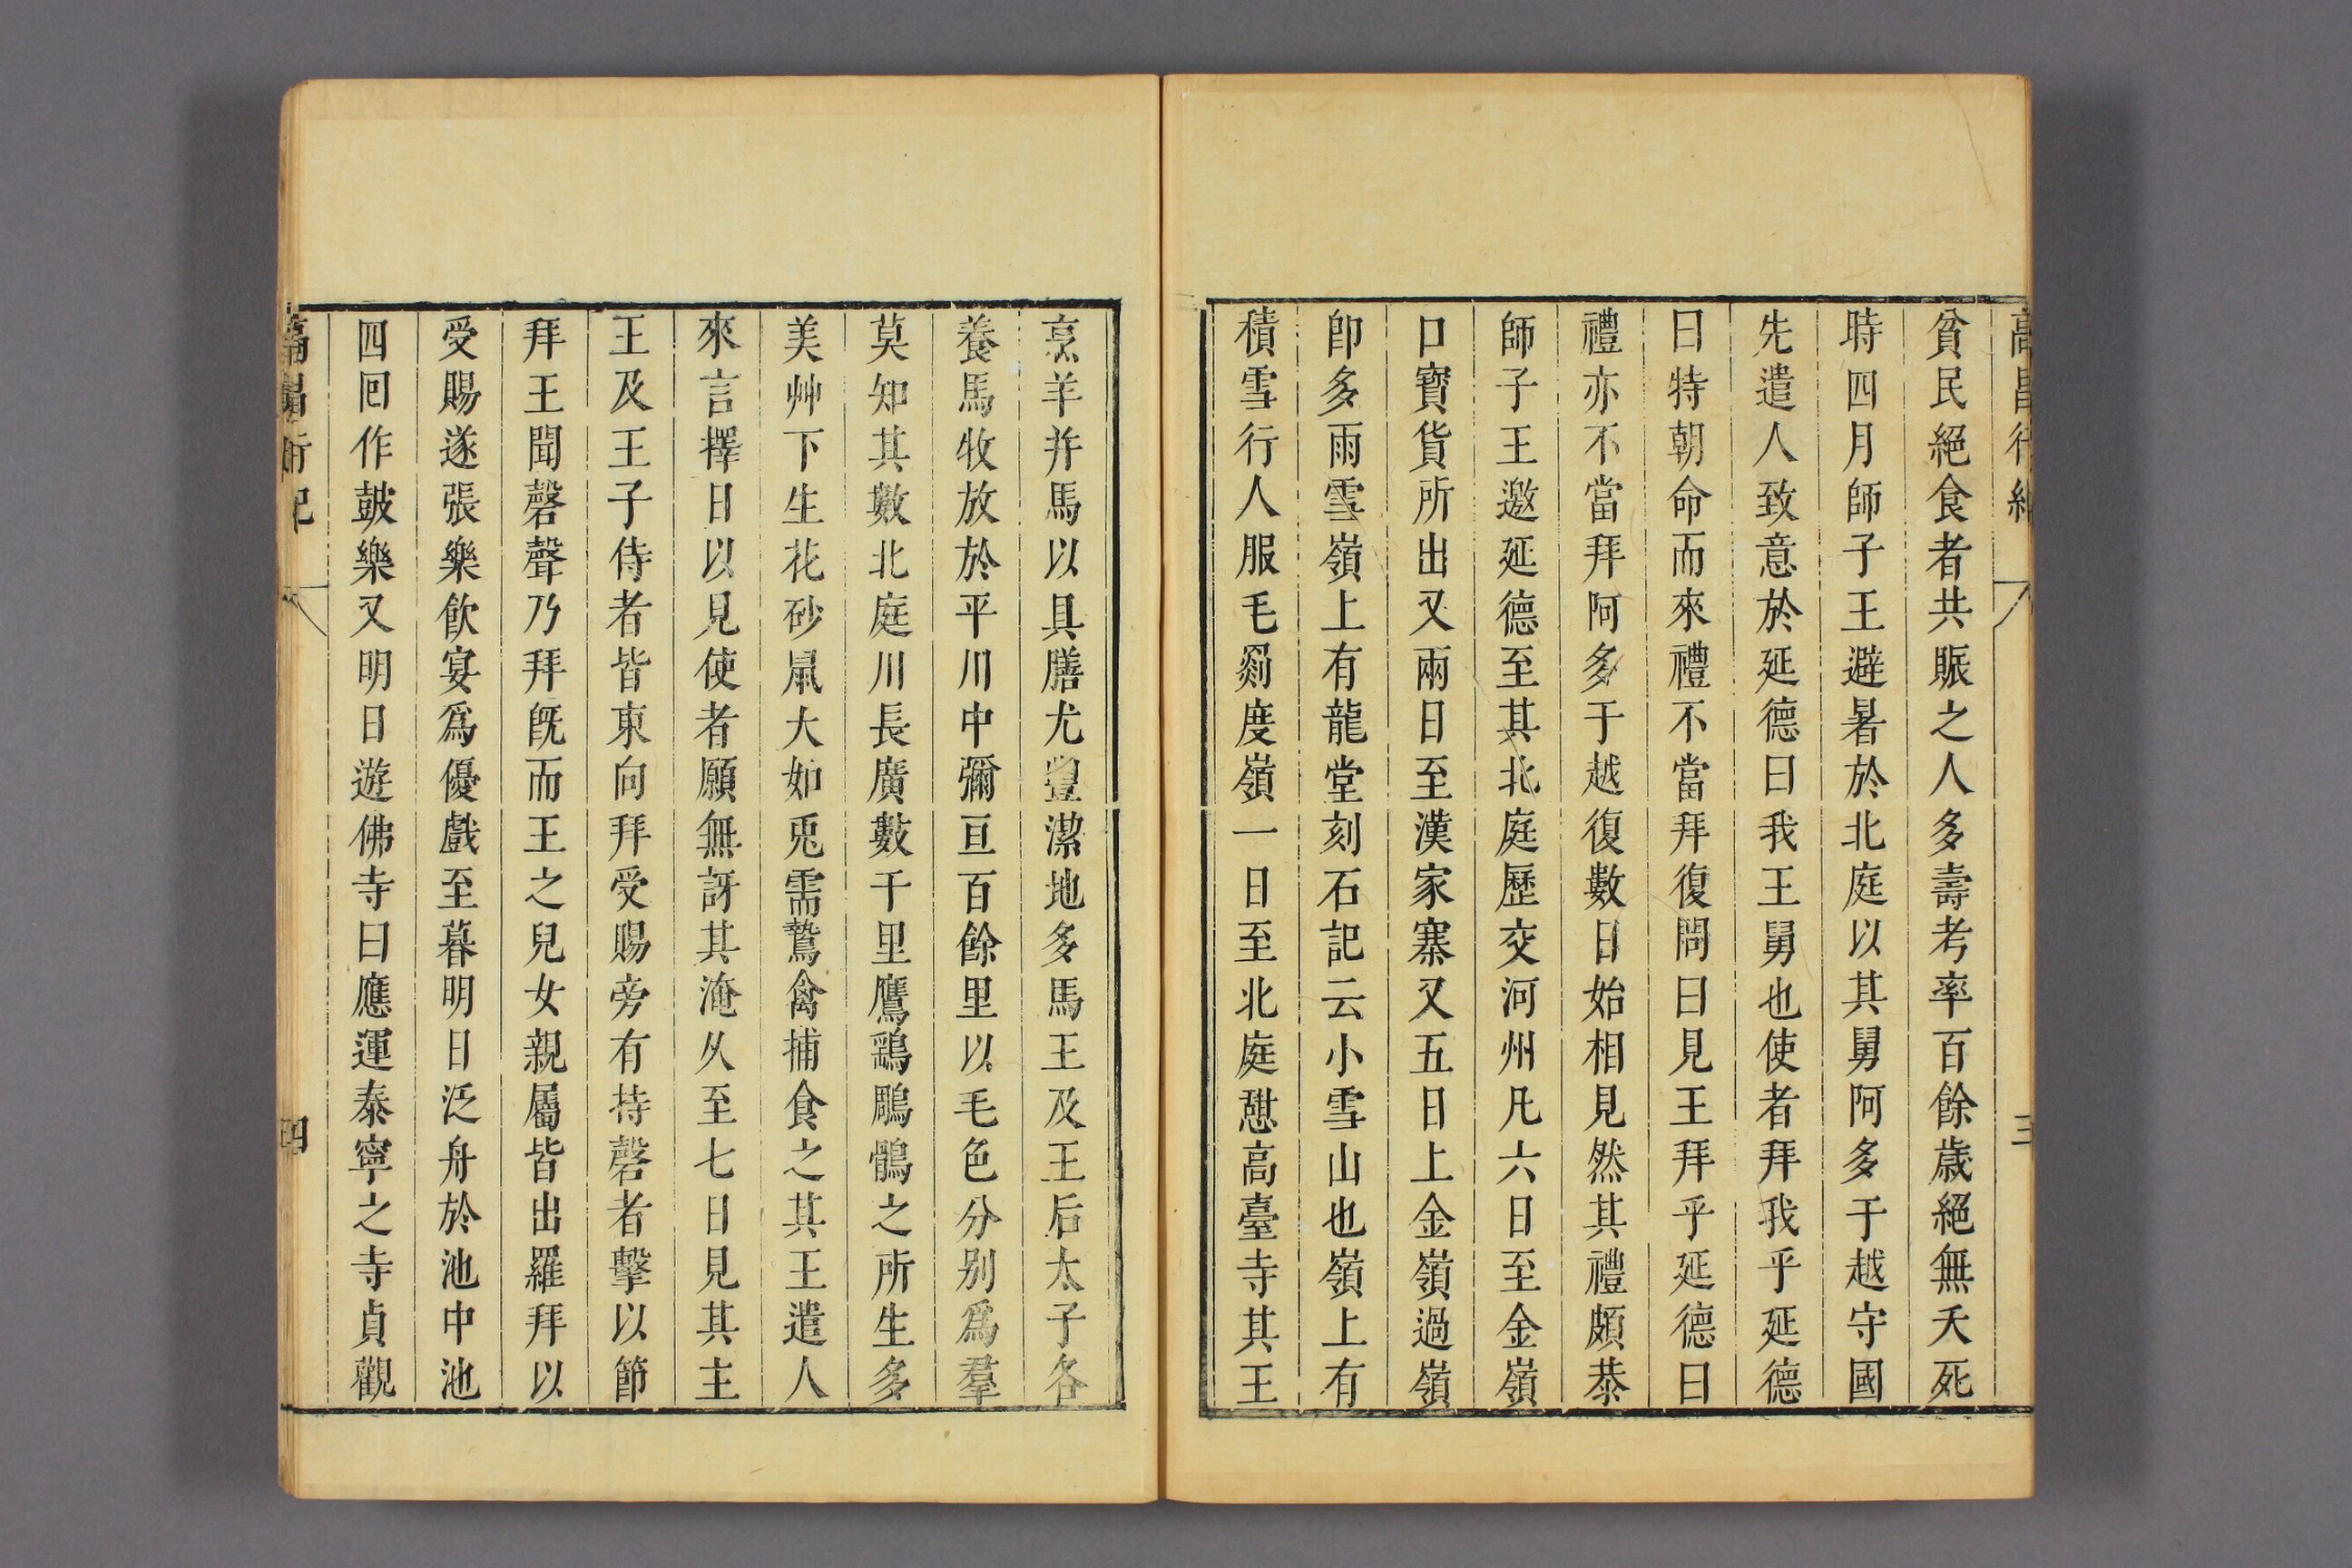 貧民絕食者共賑之人多壽考率百餘歳絕無夭死
時四月師子王避暑於北庭以其舅阿多于越守國
先遣人致意於延德曰我王舅也使者拜我乎延德
曰特朝命而來禮不當拜復問曰見王拜乎延德曰
禮亦不當拜阿多于越復數日始相見然其禮頗恭
師子王邀延德至其北庭歷交河州凡六日至金嶺
口寶貨所出又兩日至漢家寨又五日上金嶺過嶺
即多雨雪嶺上有龍堂刻石記云小雪山也嶺上有
積雪行人服毛罽度嶺一日至北庭憇高臺寺其王
烹羊并馬以具膳尤豐潔地多馬王及王后太子各
養馬牧放於平川中彌亘百餘里以毛色分别爲羣
莫知其數北庭川長廣數千里鷹鷂鵰鶻之所生多
美艸下生花砂鼠大如兎需鷙禽捕食之其王遣人
來言擇日以見使者願無訝其淹久至七日見其主
王及王子侍者皆東向拜受賜旁有持磬者擊以節
拜王聞磬聲乃拜旣而王之兒女親屬皆出羅拜以
受賜遂張樂飲宴爲優戲至暮明日泛舟於池中池
四回作皷樂又明日遊佛寺曰應運泰寧之寺貞觀
高昌行紀
四